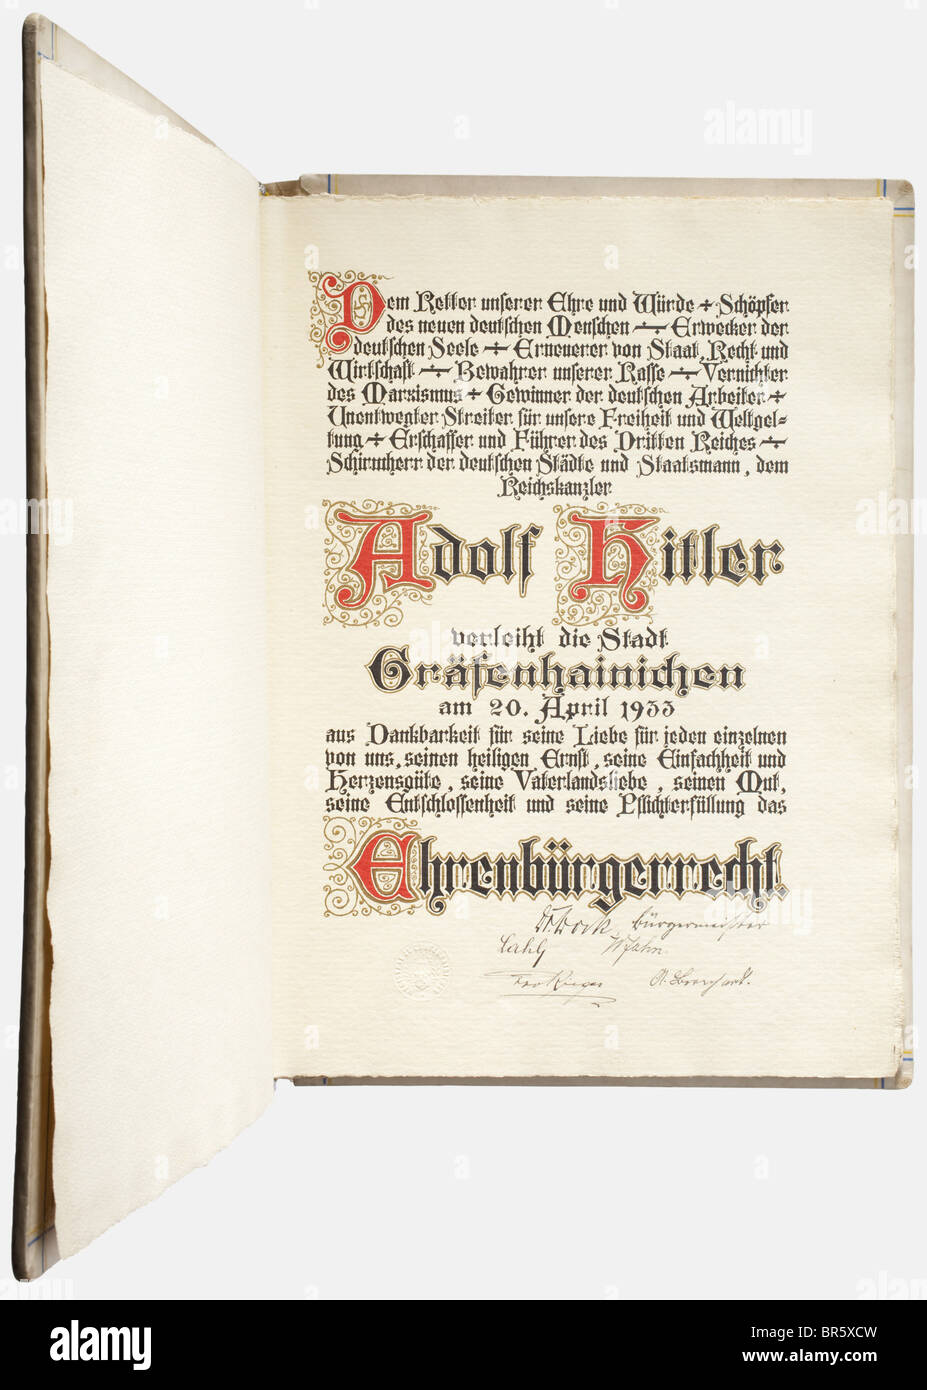 Dem Retter unserer Ehre und Würde + Schöpfer
des neuen deutschen Menschen + Erwecker der
deutschen Seele + Erneuerer von Staat, Recht und
Wirtschaft + Bewahrer unserer Rasse + Vernichter
des Marxismus + Gewinner der deutschen Arbeiter +
Unentwegter Streiter für unsere Freiheit und Weltgel=
tung + Erschaffer und Führer des Dritten Reiches +
Schirmherr der deutschen Städte und Staatsmann, dem
Reichskanzler
Adolf Hitler
verleiht die Stadt
Gräfenhainichen
am 20. April 1933
aus Dankbarkeit für seine Liebe für jeden einzelnen
von uns, seinen heiligen Ernst, seine Einfachheit und
Herzensgüte, seine Vaterlandsliebe, seinen Mut,
seine Entschlossenheit und seine Pflichterfüllung das
Ehrenbürgerrecht.
Bürgermeister
alamy
Image ID: BR5XCW
www.alamy.com